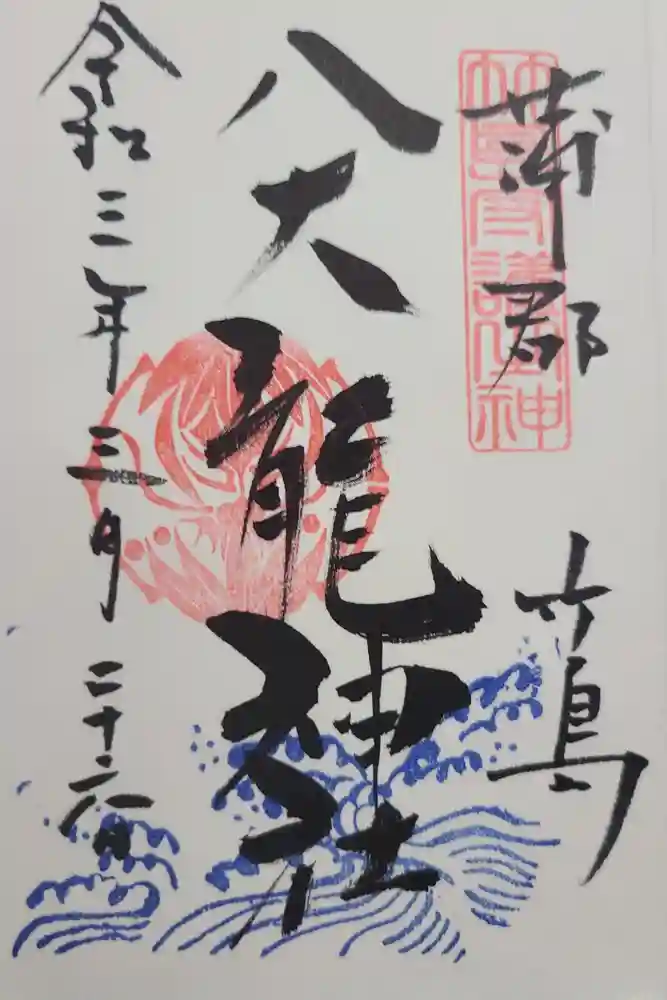 蒲郡 竹島
竹島守護神
八大龍神社
令和三年三月二十六日